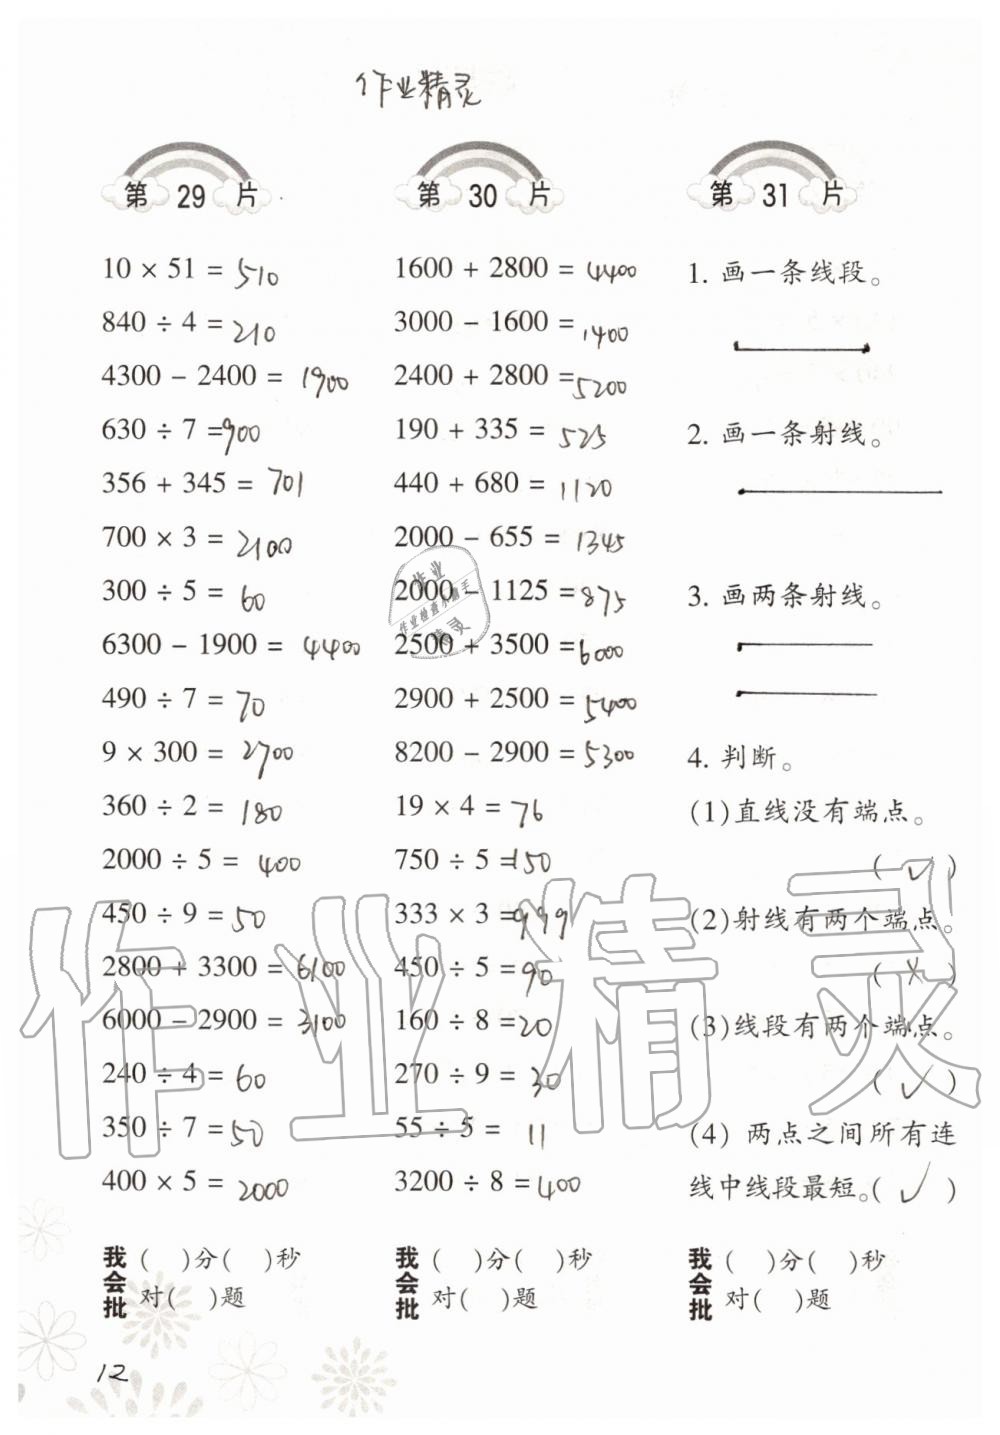 作业精灵
第 29 片
10 × 51 = 510
840 ÷ 4 = 210
4300 − 2400 = 1900
630 ÷ 7 = 900
356 + 345 = 701
700 × 3 = 2100
300 ÷ 5 = 60
6300 − 1900 = 4400
490 ÷ 7 = 70
9 × 300 = 2700
360 ÷ 2 = 180
2000 ÷ 5 = 400
450 ÷ 9 = 50
2800 + 3300 = 6100
6000 − 2900 = 3100
240 ÷ 4 = 60
350 ÷ 7 = 50
400 × 5 = 2000
我会批
( )分( )秒
对( )题
第 30 片
1600 + 2800 = 4400
3000 − 1600 = 1400
2400 + 2800 = 5200
190 + 335 = 525
440 + 680 = 1120
2000 − 655 = 1345
2000 − 1125 = 875
2500 + 3500 = 6000
2900 + 2500 = 5400
8200 − 2900 = 5300
19 × 4 = 76
750 ÷ 5 = 150
333 × 3 = 999
450 ÷ 5 = 90
160 ÷ 8 = 20
270 ÷ 9 = 30
55 ÷ 5 = 11
3200 ÷ 8 = 400
我会批
( )分( )秒
对( )题
第 31 片
1. 画一条线段。
2. 画一条射线。
3. 画两条射线。
4. 判断。
(1)直线没有端点。
( ✓ )
(2)射线有两个端点。
( × )
(3)线段有两个端点。
( ✓ )
(4) 两点之间所有连
线中线段最短。( ✓ )
我会批
( )分( )秒
对( )题
12
作业
作业检查小霸王
精灵
作业精灵